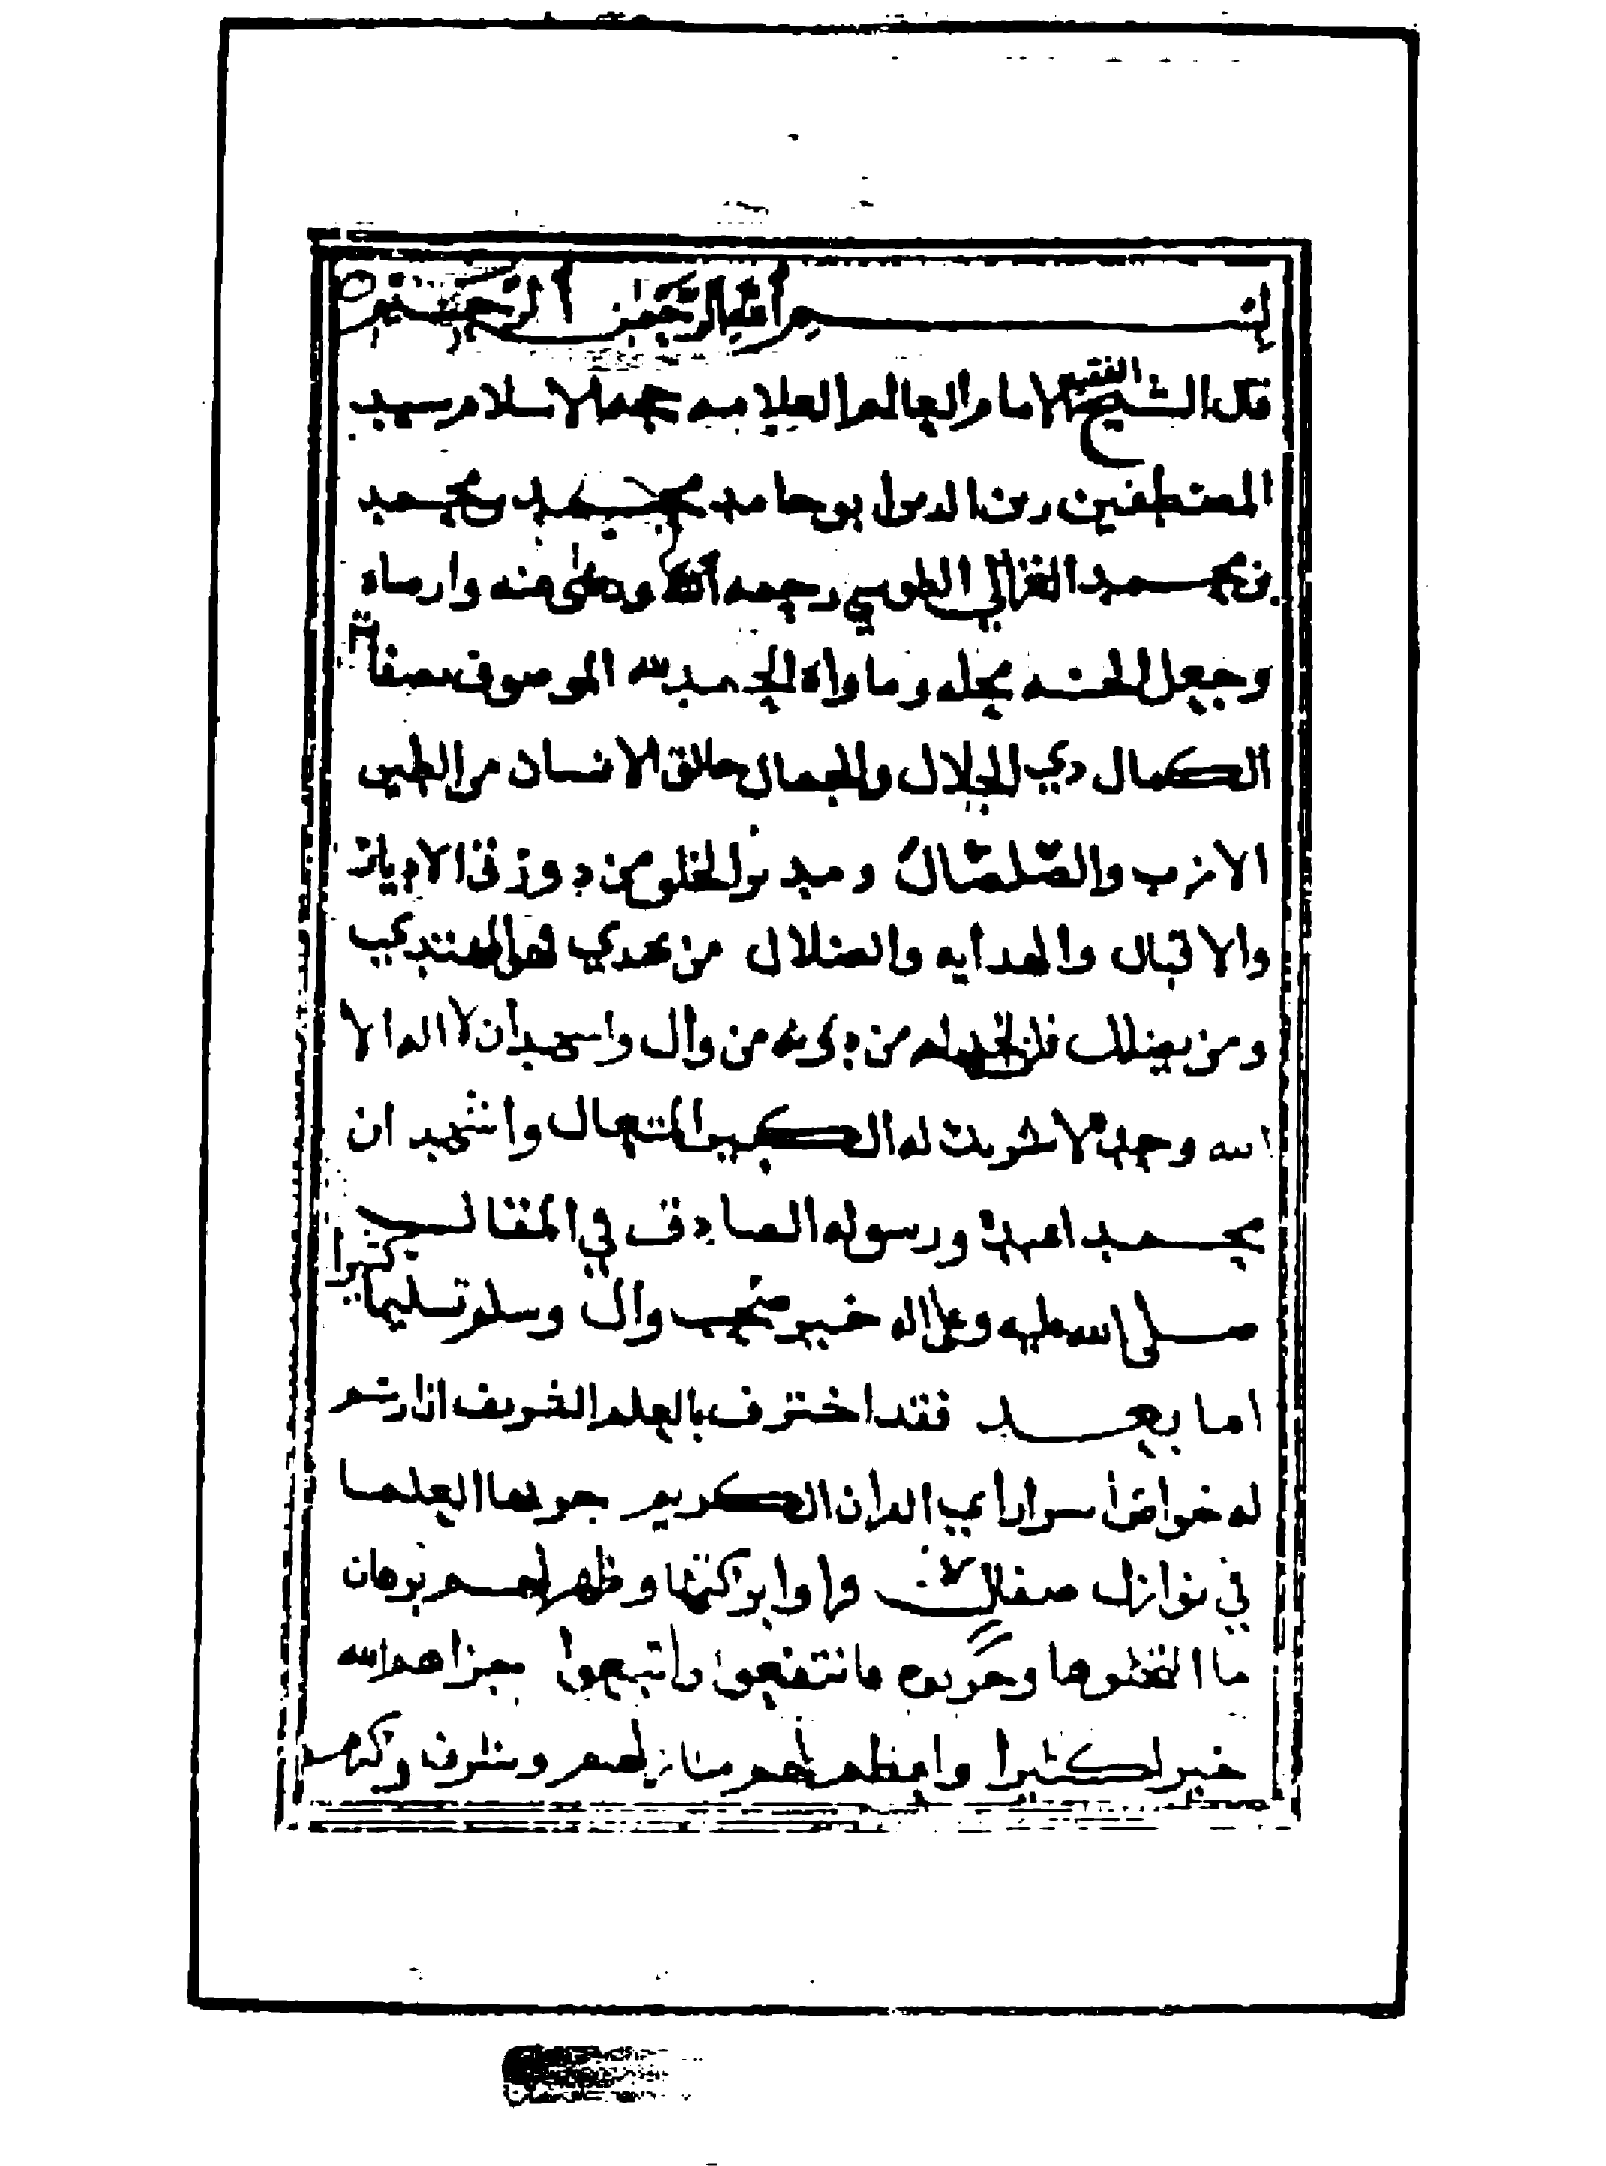 بسم الله الرحمن الرحيم
قال الشيخ الفقيه الامام العالم العلامه حجه الاسلام سيد
المصنفين زين الدين ابو حامد محمد بن محمد
بن محمد الغزالي الطوسي رحمه الله ورضي عنه وارضاه
وجعل الجنه محله وماواه الحمد لله الموصوف بصفات
الكمال ذي الجلال والجمال خالق الانسان من الطين
الازب والصلصال ومدبر الخلق من دون في الادبار
والاقبال والهدايه والضلال من يهدي فهو المهتدي
ومن يضلل فلن تجد له من دونه من وال واشهد ان لا اله الا
الله وحده لا شريك له الكبير المتعال واشهد ان
محمدا عبده ورسوله الصادق في المقال
صلى الله عليه وعلى اله خير صحب وال وسلم تسليما كثيرا
اما بعد فقد اعترف بالعلم الشريف
له خواص اسرار اي القران الكريم جربها العلما
في نوازل وراوا بركتها وظهر لهم برهان
ما وجربوه فانتفعوا واتبعوا فجزاهم الله
خيرا كثيرا واعظم لهم منازلهم وشرف وكرم